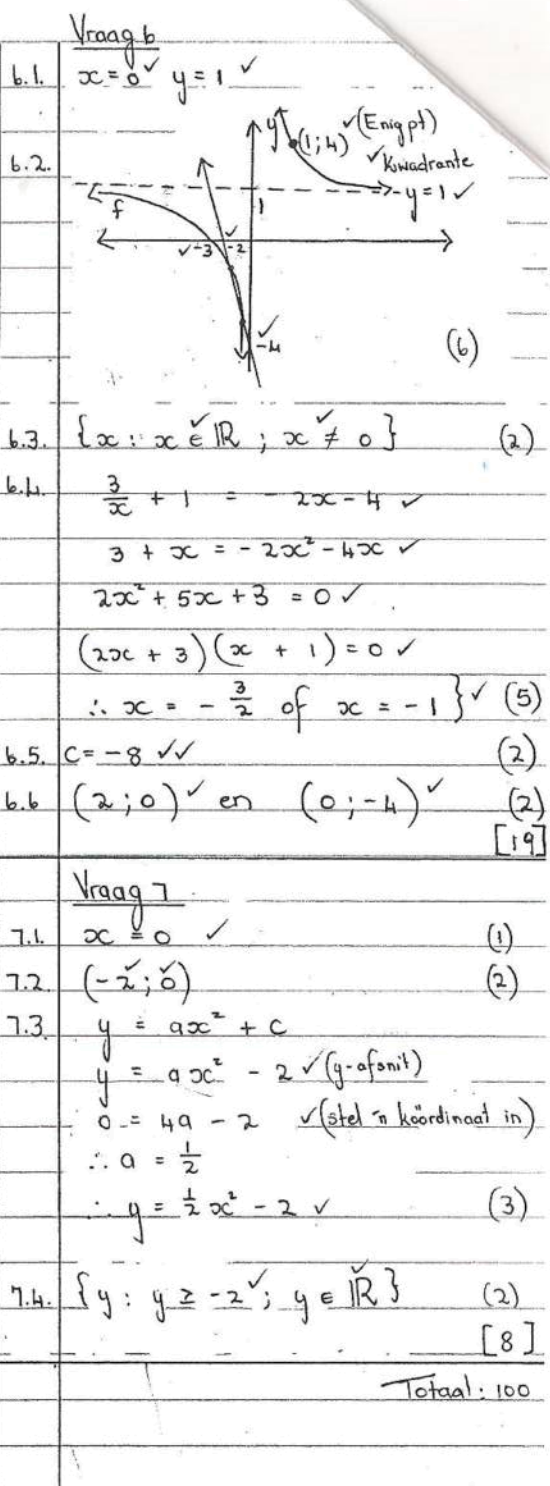 Vraag 6
6.1. x = 0 ✓ y = 1 ✓
6.2.
y (1;4) ✓(Enig pt)
✓Kwadrante
y = 1 ✓
f
1
✓-3 ✓-2
✓-4
(6)
6.3. {x : x ∈✓ ℝ ; x ≠✓ 0} (2)
6.4. 3/x + 1 = - 2x - 4 ✓
3 + x = - 2x² - 4x ✓
2x² + 5x + 3 = 0 ✓
(2x + 3)(x + 1) = 0 ✓
∴ x = - 3/2 of x = -1 } ✓ (5)
6.5. C = -8 ✓✓ (2)
6.6 (2;0)✓ en (0;-4)✓ (2)
[19]
Vraag 7
7.1. x = 0 ✓ (1)
7.2. (-2✓; 0✓) (2)
7.3 y = ax² + c
y = ax² - 2 ✓(y-afsnit)
0 = 4a - 2 ✓(stel 'n koördinaat in)
∴ a = 1/2
∴ y = 1/2 x² - 2 ✓ (3)
7.4. {y : y ≥ -2✓; y ∈ ℝ✓} (2)
[8]
Totaal: 100